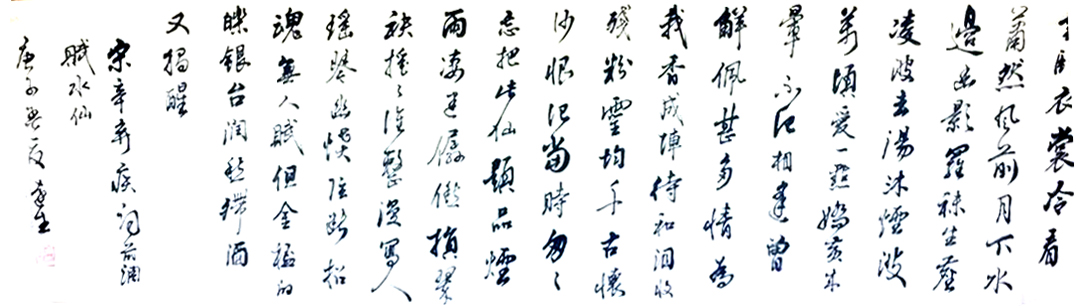 衣裳冷看
蕭然風前月下水
邊幽影羅袜生塵
凌波去湯沐煙波
萬頃愛一點嬌黃成
暈不記相逢曾
解佩甚多情為
我香成陣待和淚收
殘粉靈均千古懷
沙恨記當時匆匆
忘把此仙題品煙
雨凄迷僝僽損翠
袂摇摇谁整漫寫入
瑶琴幽愤弦断招
魂無人賦但金杯的
皪銀台润愁殢酒
又獨醒
宋辛弃疾词前调
赋水仙
庚子